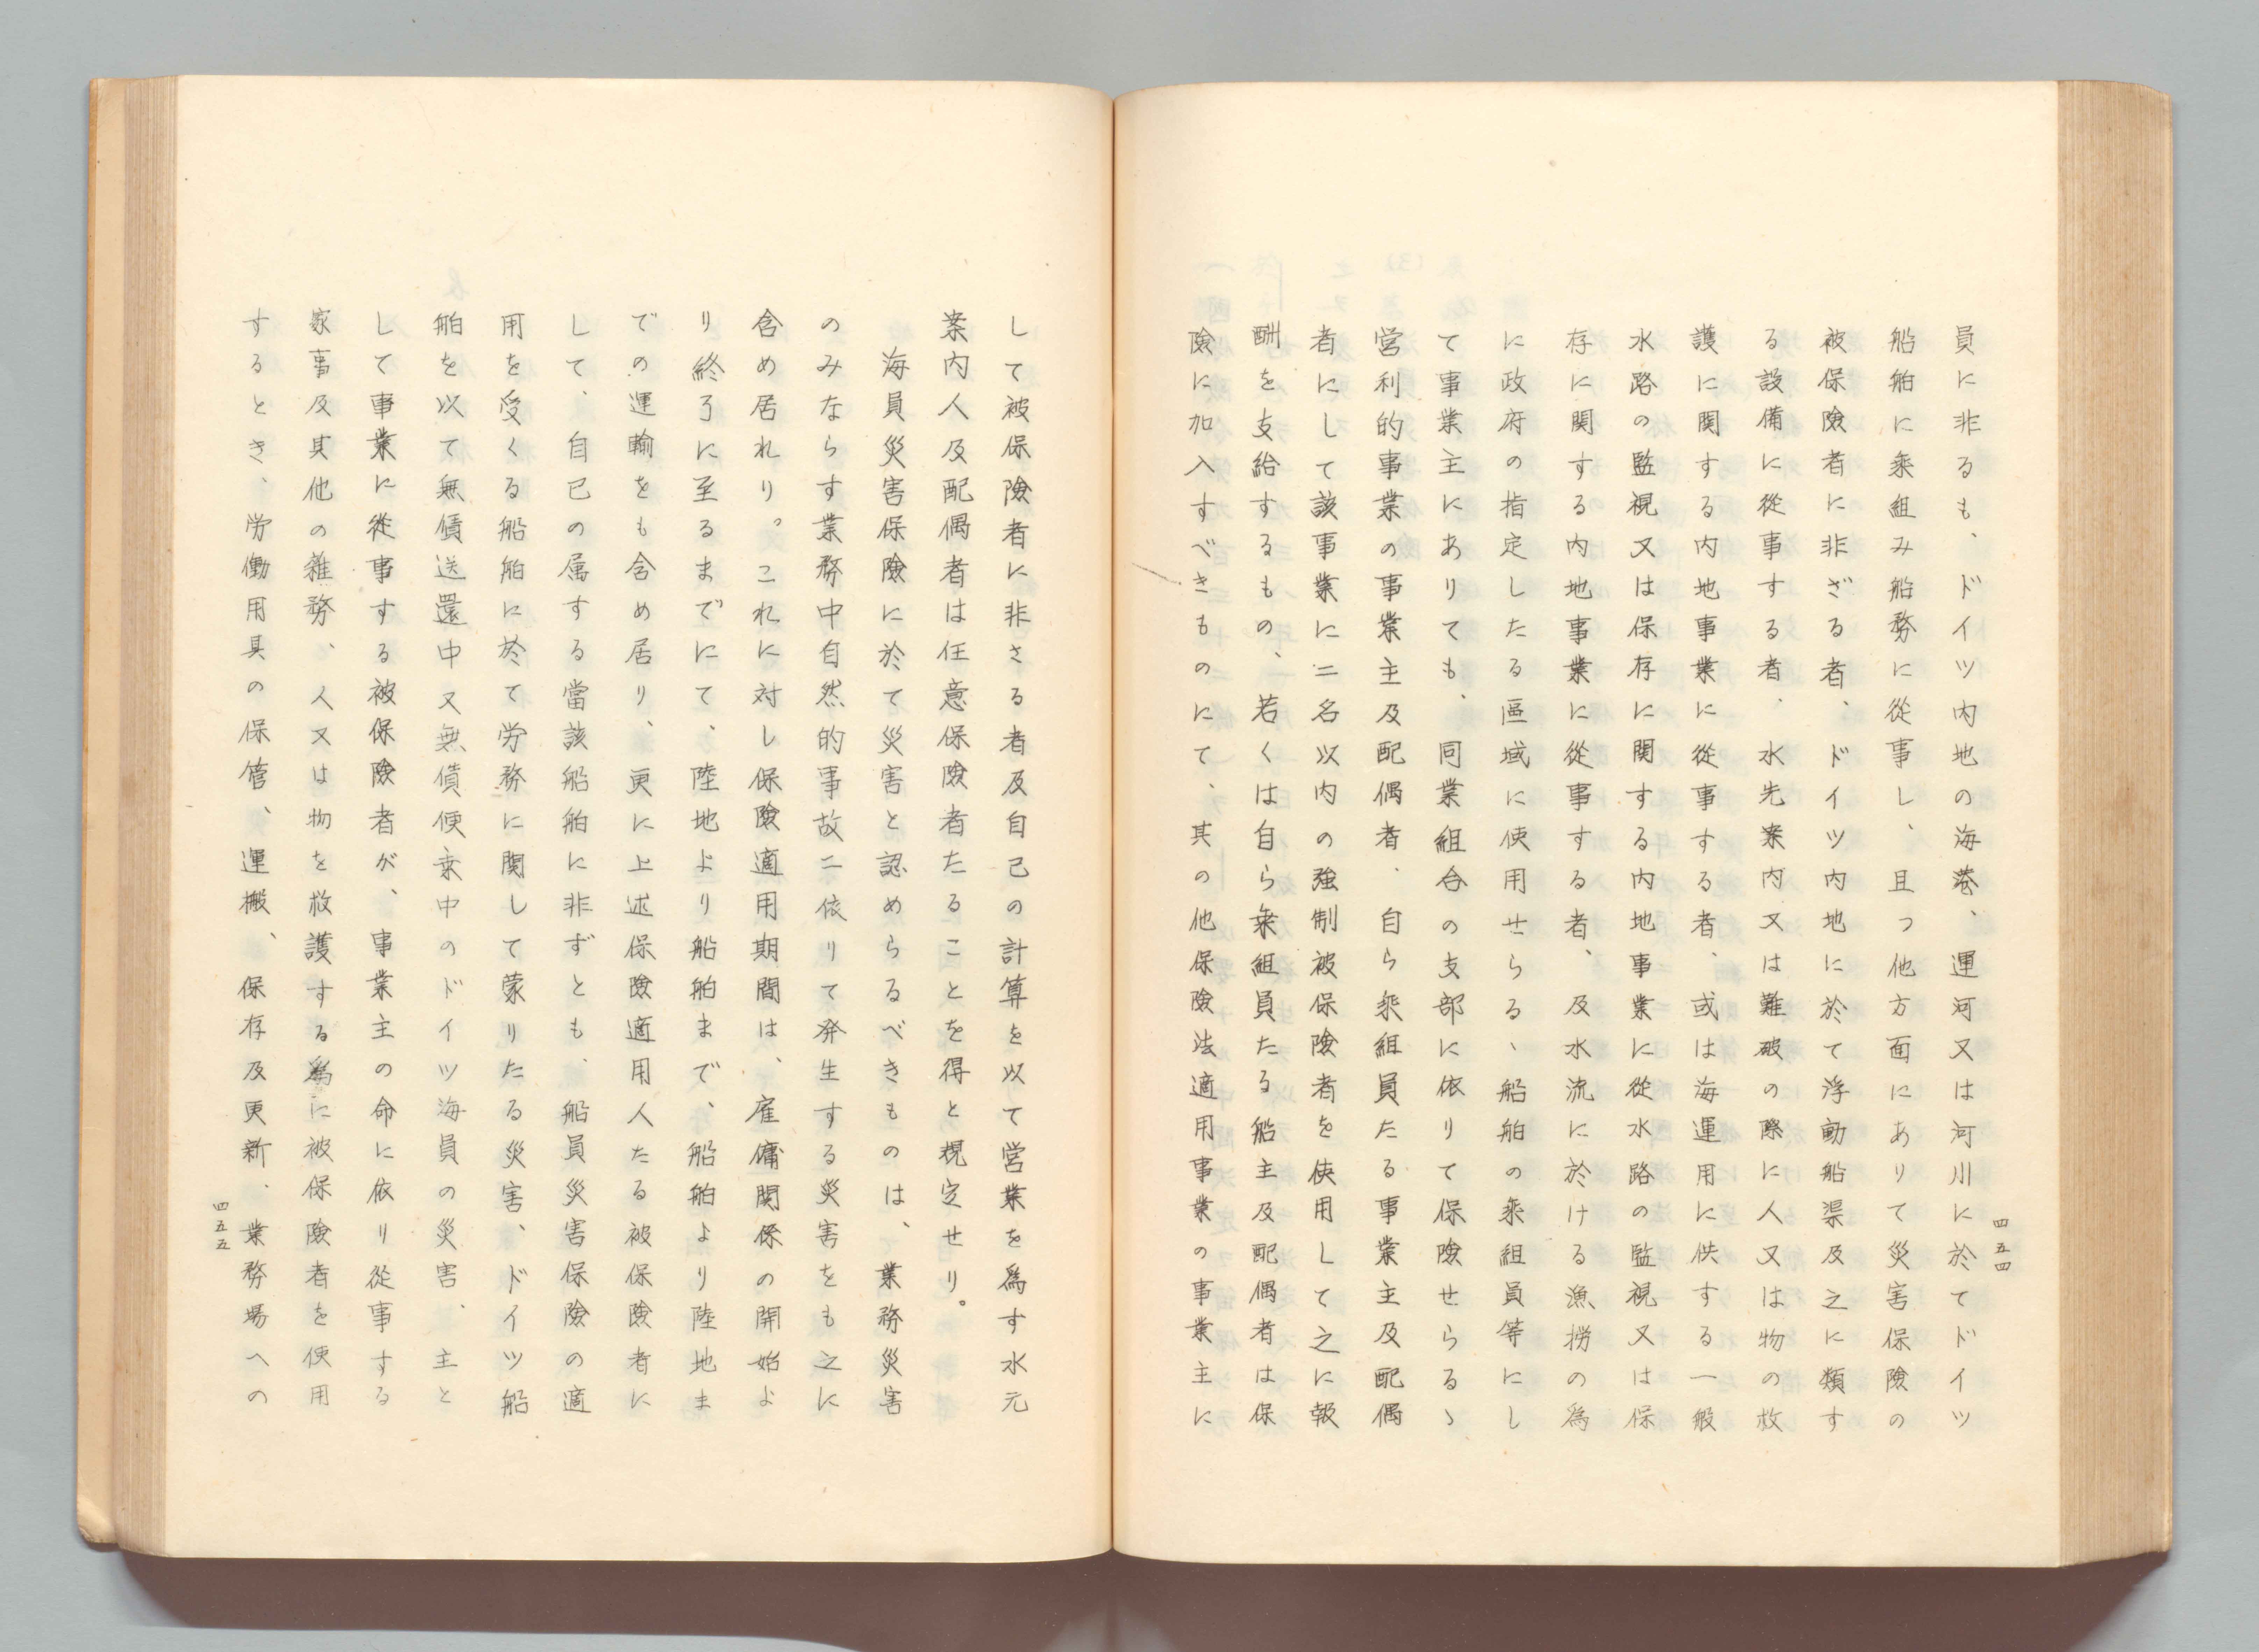 員に非るも、ドイツ内地の海港、運河又は河川に於てドイツ
船舶に乘組み船務に從事し、且つ他方面にありて災害保險の
被保險者に非ざる者、ドイツ内地に於て浮動船渠及之に類す
る設備に從事する者、水先案内又は難破の際に人又は物の救
護に関する内地事業に從事する者、或は海運用に供する一般
水路の監視又は保存に関する内地事業に從水路の監視又は保
存に関する内地事業に從事する者、及水流に於ける漁撈の爲
に政府の指定したる區域に使用せらる、船舶の乘組員等にし
て事業主にありても、同業組合の支部に依りて保險せらるゝ
営利的事業の事業主及配偶者、自ら乘組員たる事業主及配偶
者にして該事業に二名以内の強制被保險者を使用して之に報
酬を支給するもの、若くは自ら乘組員たる船主及配偶者は保
險に加入すべきものにて、其の他保險法適用事業の事業主に
四五四
して被保險者に非さる者及自己の計算を以て営業を爲す水元
案内人及配偶者は任意保險者たることを得と規定せり。
海員災害保險に於て災害と認めらるべきものは、業務災害
のみならす業務中自然的事故ニ依りて発生する災害をも之に
含め居れり。これに対し保險適用期間は、雇傭関係の開始よ
り終了に至るまでにて、陸地より船舶まで、船舶より陸地ま
での運輸をも含め居り、更に上述保險適用人たる被保險者に
して、自己の属する當該船舶に非ずとも、船員災害保險の適
用を受くる船舶に於て労務に関して蒙りたる災害、ドイツ船
舶を以て無償送還中又無償便乗中のドイツ海員の災害、主と
して事業に從事する被保險者が、事業主の命に依り從事する
家事及其他の雑務、人又は物を救護する爲に被保險者を使用
するとき、労働用具の保管、運搬、保存及更新、業務場への
四五五